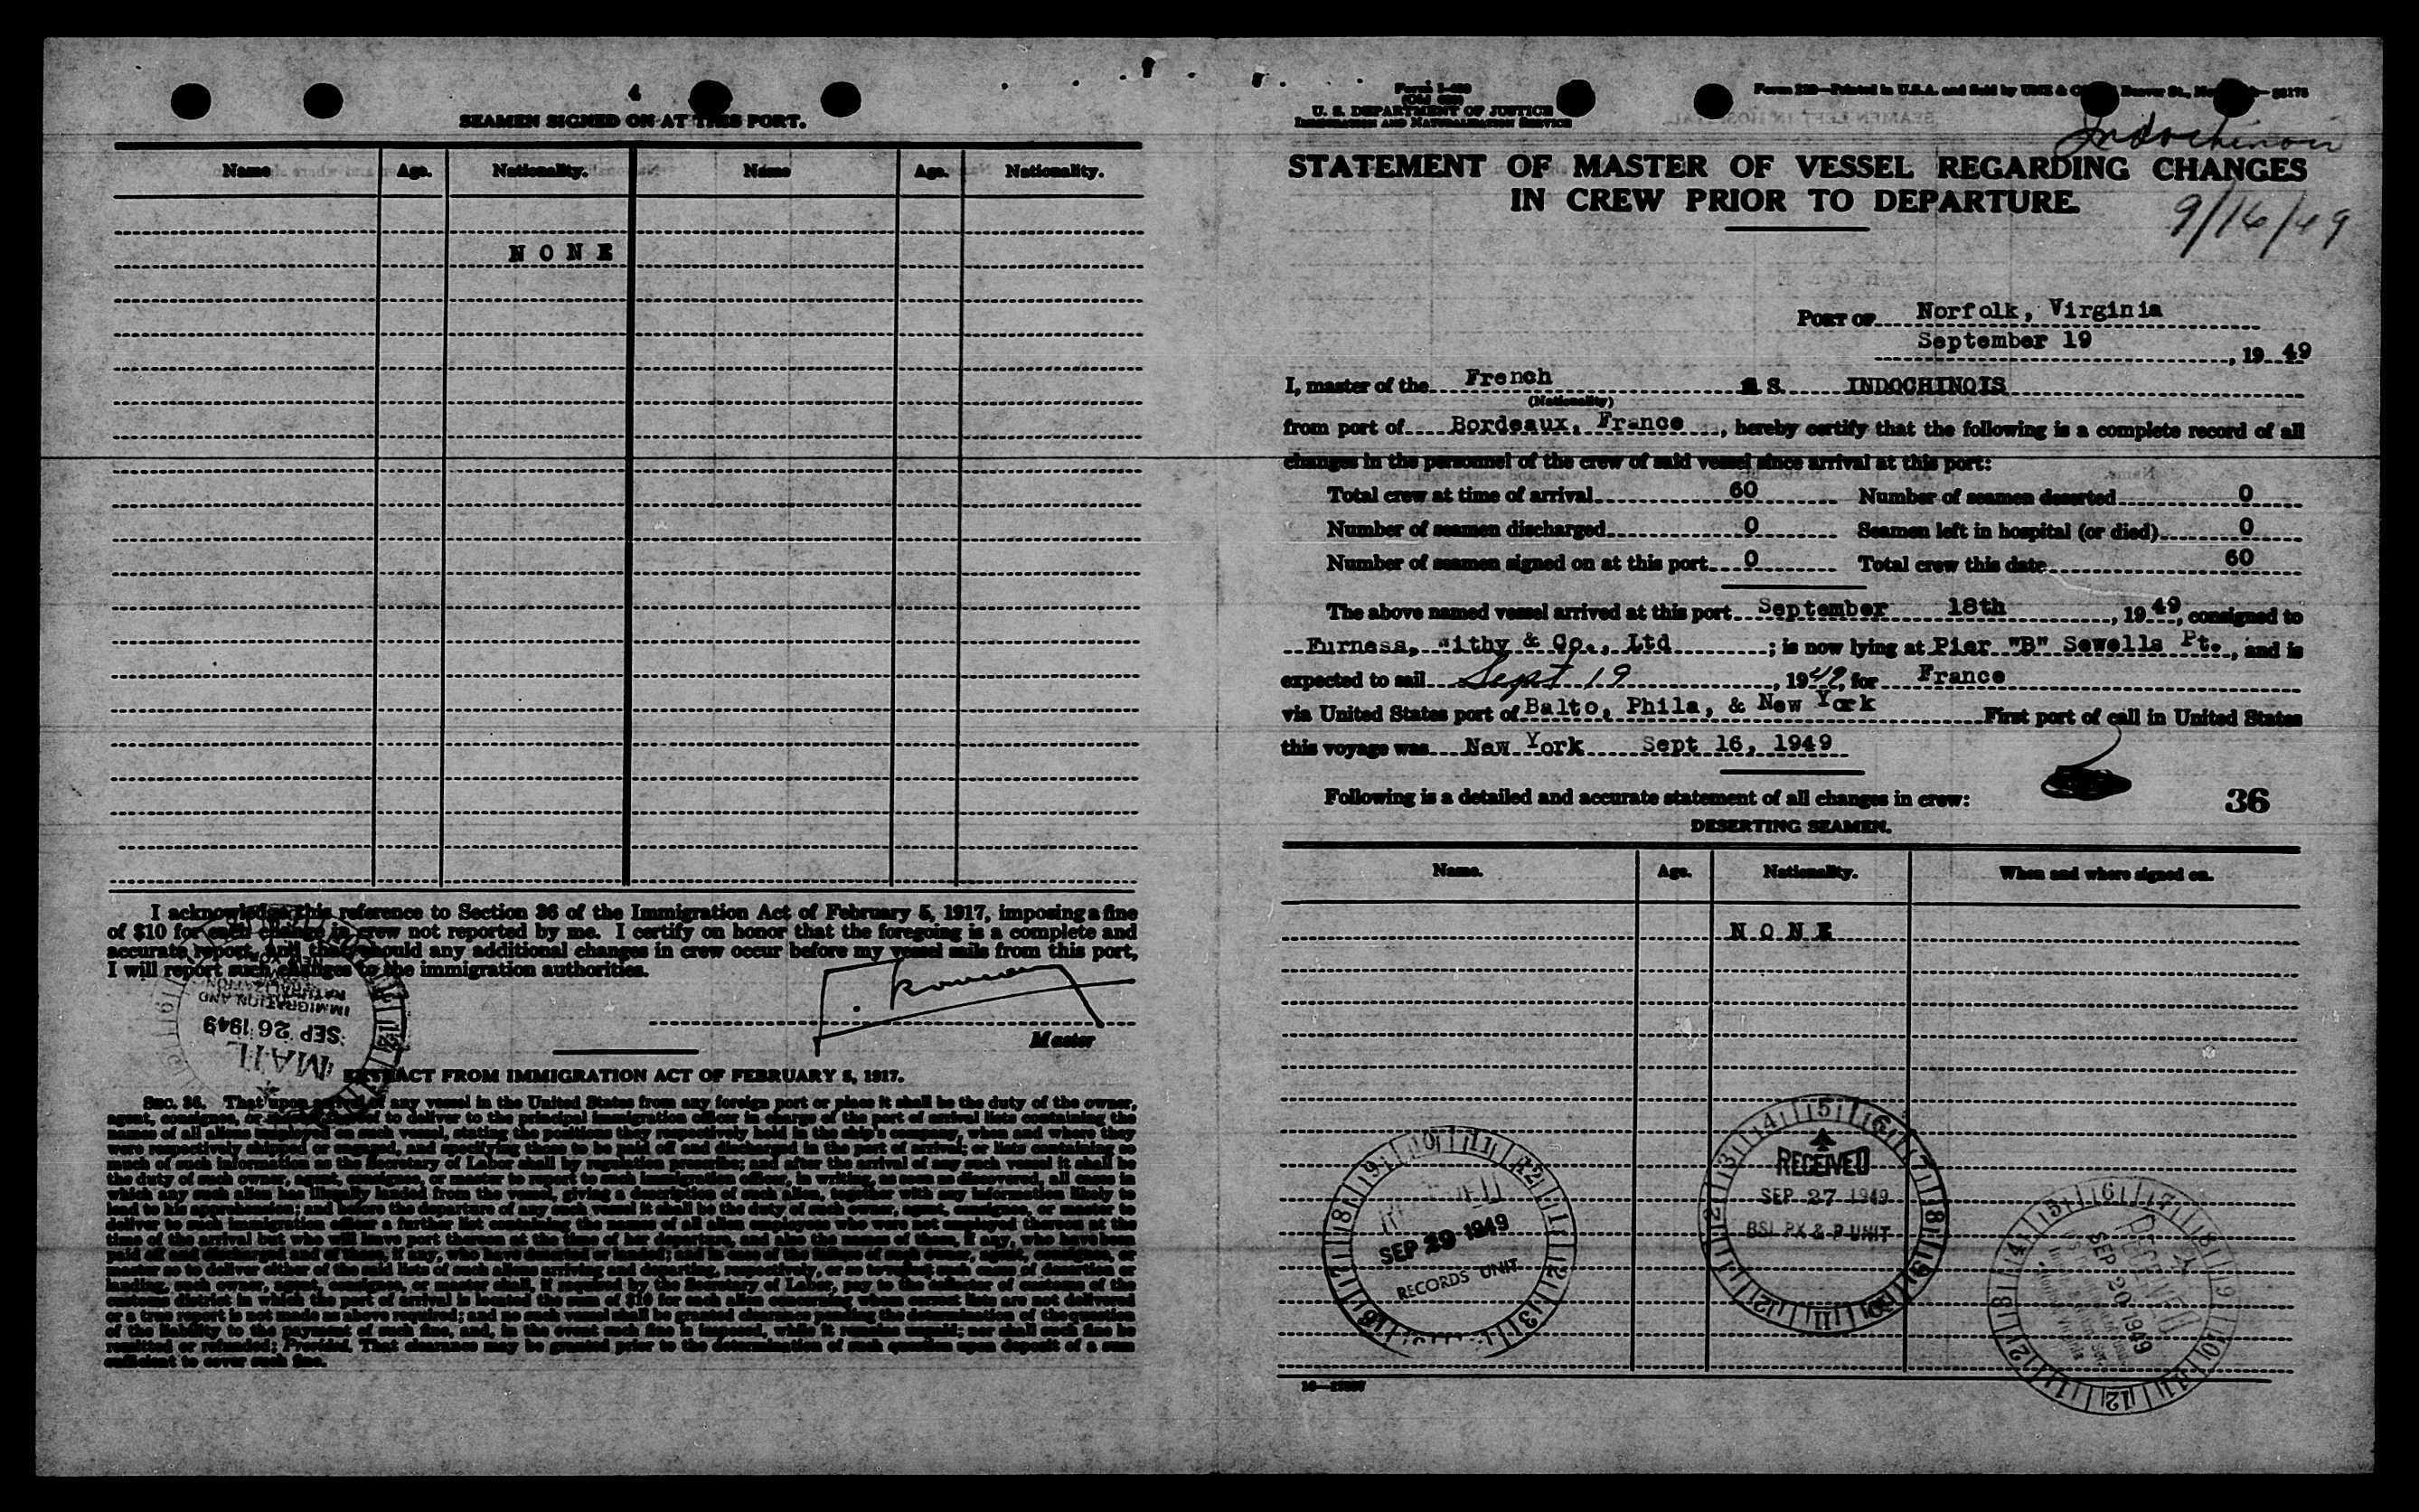 4
SEAMEN SIGNED ON AT THIS PORT.
Name Age. Nationality. Name Age. Nationality.
N O N E
I acknowledge this reference to Section 36 of the Immigration Act of February 5, 1917, imposing a fine
of $10 for each change in crew not reported by me. I certify on honor that the foregoing is a complete and
accurate report, and that should any additional changes in crew occur before my vessel sails from this port,
I will report such changes to the immigration authorities.
Master
IMMIGRATION AND
NATURALIZATION
SEP 26 1949
MAIL
EXTRACT FROM IMMIGRATION ACT OF FEBRUARY 5, 1917.
SEC. 36. That upon arrival of any vessel in the United States from any foreign port or place it shall be the duty of the owner,
agent, consignee, or master thereof to deliver to the principal immigration officer in charge of the port of arrival lists containing the
names of all aliens employed on such vessel, stating the positions they respectively hold in the ship's company, when and where they
were respectively shipped or engaged, and specifying those to be paid off and discharged in the port of arrival; or lists containing so
much of such information as the Secretary of Labor shall by regulation prescribe; and after the arrival of any such vessel it shall be
the duty of such owner, agent, consignee, or master to report to such immigration officer, in writing, as soon as discovered, all cases in
which any such alien has illegally landed from the vessel, giving a description of such alien, together with any information likely to
lead to his apprehension; and before the departure of any such vessel it shall be the duty of such owner, agent, consignee, or master to
deliver to such immigration officer a further list containing the names of all alien employees who were not employed thereon at the
time of the arrival but who will leave port thereon at the time of her departure, and also the names of those, if any, who have been
paid off and discharged, and of those, if any, who have deserted or landed; and in case of the failure of such owner, agent, consignee, or
master so to deliver either of the said lists of such aliens arriving and departing, respectively, or so to report such cases of desertion or
landing, such owner, agent, consignee, or master shall, if required by the Secretary of Labor, pay to the collector of customs of the
customs district in which the port of arrival is located the sum of $10 for each alien concerning whom correct lists are not delivered
or a true report is not made as above required; and no such vessel shall be granted clearance pending the determination of the question
of the liability to the payment of such fine, and, in the event such fine is imposed, while it remains unpaid; nor shall such fine be
remitted or refunded; Provided, That clearance may be granted prior to the determination of such question upon deposit of a sum
sufficient to cover such fine.
U. S. DEPARTMENT OF JUSTICE
IMMIGRATION AND NATURALIZATION SERVICE
Indochinois
STATEMENT OF MASTER OF VESSEL REGARDING CHANGES
IN CREW PRIOR TO DEPARTURE.
9/16/49
PORT OF Norfolk, Virginia
September 19, 19 49
I, master of the French S. INDOCHINOIS
(Nationality)
from port of Bordeaux, France, hereby certify that the following is a complete record of all
changes in the personnel of the crew of said vessel since arrival at this port:
Total crew at time of arrival 60 Number of seamen deserted 0
Number of seamen discharged 0 Seamen left in hospital (or died) 0
Number of seamen signed on at this port 0 Total crew this date 60
The above named vessel arrived at this port September 18th, 19 49, consigned to
Furness, Withy & Co., Ltd ; is now lying at Pier "B" Sewells Pt., and is
expected to sail Sept 19, 19 49, for France
via United States port of Balto, Phila, & New York First port of call in United States
this voyage was New York Sept 16, 1949
Following is a detailed and accurate statement of all changes in crew: 36
DESERTING SEAMEN.
Name. Age. Nationality. When and where signed on.
N O N E
SEP 29 1949
RECORDS UNIT
RECEIVED
SEP 27 1949
BSI PX & P UNIT
RECEIVED
SEP 20 1949